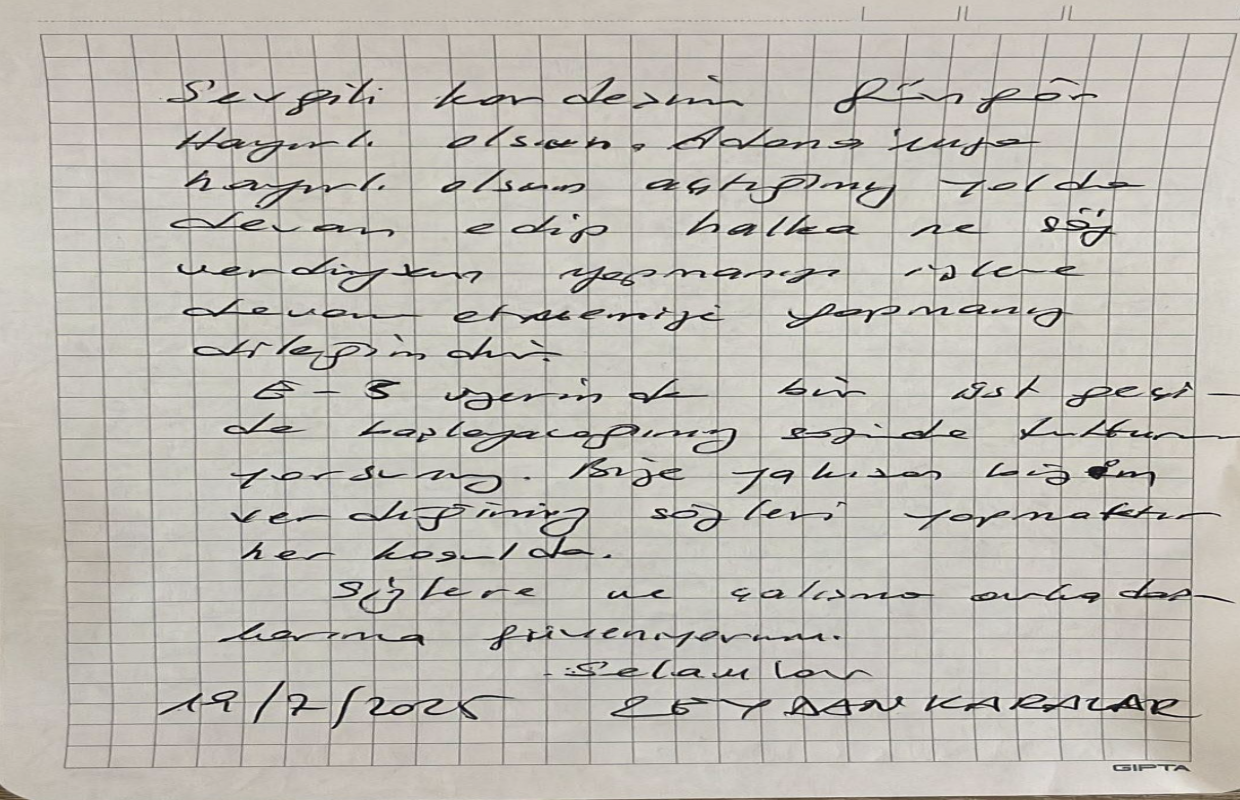 Sevgili kardeşim Güngör
Hayırlı olsun. Adana'mıza
hayırlı olsun açtığınız yolda
devam edip halka ne söz
verdiysen yapmanızı işlere
devam etmenizi yapmanız
dileğimdir.
E-5 üzerinde bir üst geçi-
de başlayacağınız sözünde tuttun
yorsunuz. Bize yakışan bizim
verdiğimiz sözleri yapmaktır
her koşulda.
Sizlere ve çalışma arkadaş-
larıma güveniyorum.
Selamlar
19/7/2025 ZEYDAN KARALAR
GIPTA